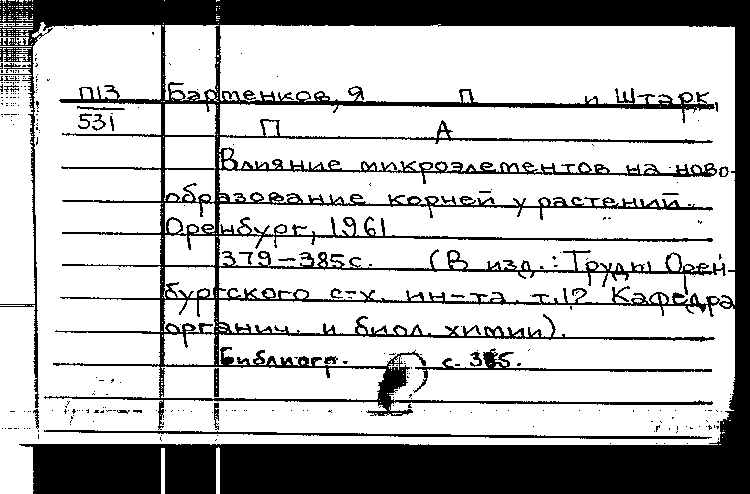 П13 Бартенков, Я П и Штарк,
531 П А
Влияние микроэлементов на ново-
образование корней у растений.
Оренбург, 1961.
379-385с. (В изд.: Труды Орен-
бургского с-х. ин-та. т.12 Кафедра
органич. и биол. химии).
Библиогр. с. 385.